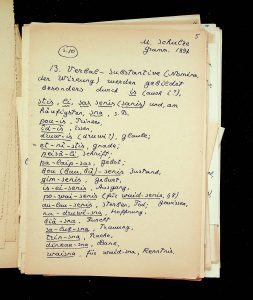 5
2.10
M. Schultze
Gramm. 1892
13. Verbal-Substantive (Nomina
der Wirkung) werden gebildet
besonders durch is (auch i?),
stis – ti, sas senis (sanis) und, am
häufigsten, sna, z.B.
pou-is, Trinken,
īd-is, Essen,
druw-is (druwi?), glaube;
et-ni-stis, gnade;
peisā-ti, schrift,
pa-laip-sas, gebot,
bou (bau, bū)-senis Zustand,
gim-senis, geburt,
is-ei-senis, Ausgang,
po-wai-senis (für waid-senis, § )
au-lau-senis, sterben, Tod; Gewissen,
na-druwi-sna, Hoffnung,
biā-sna, Furcht
sa-lub-sna, Trauung,
trin-sna, Rache,
dinkau-sna, Dank,
waisna, für waid-sna, Kenntnis